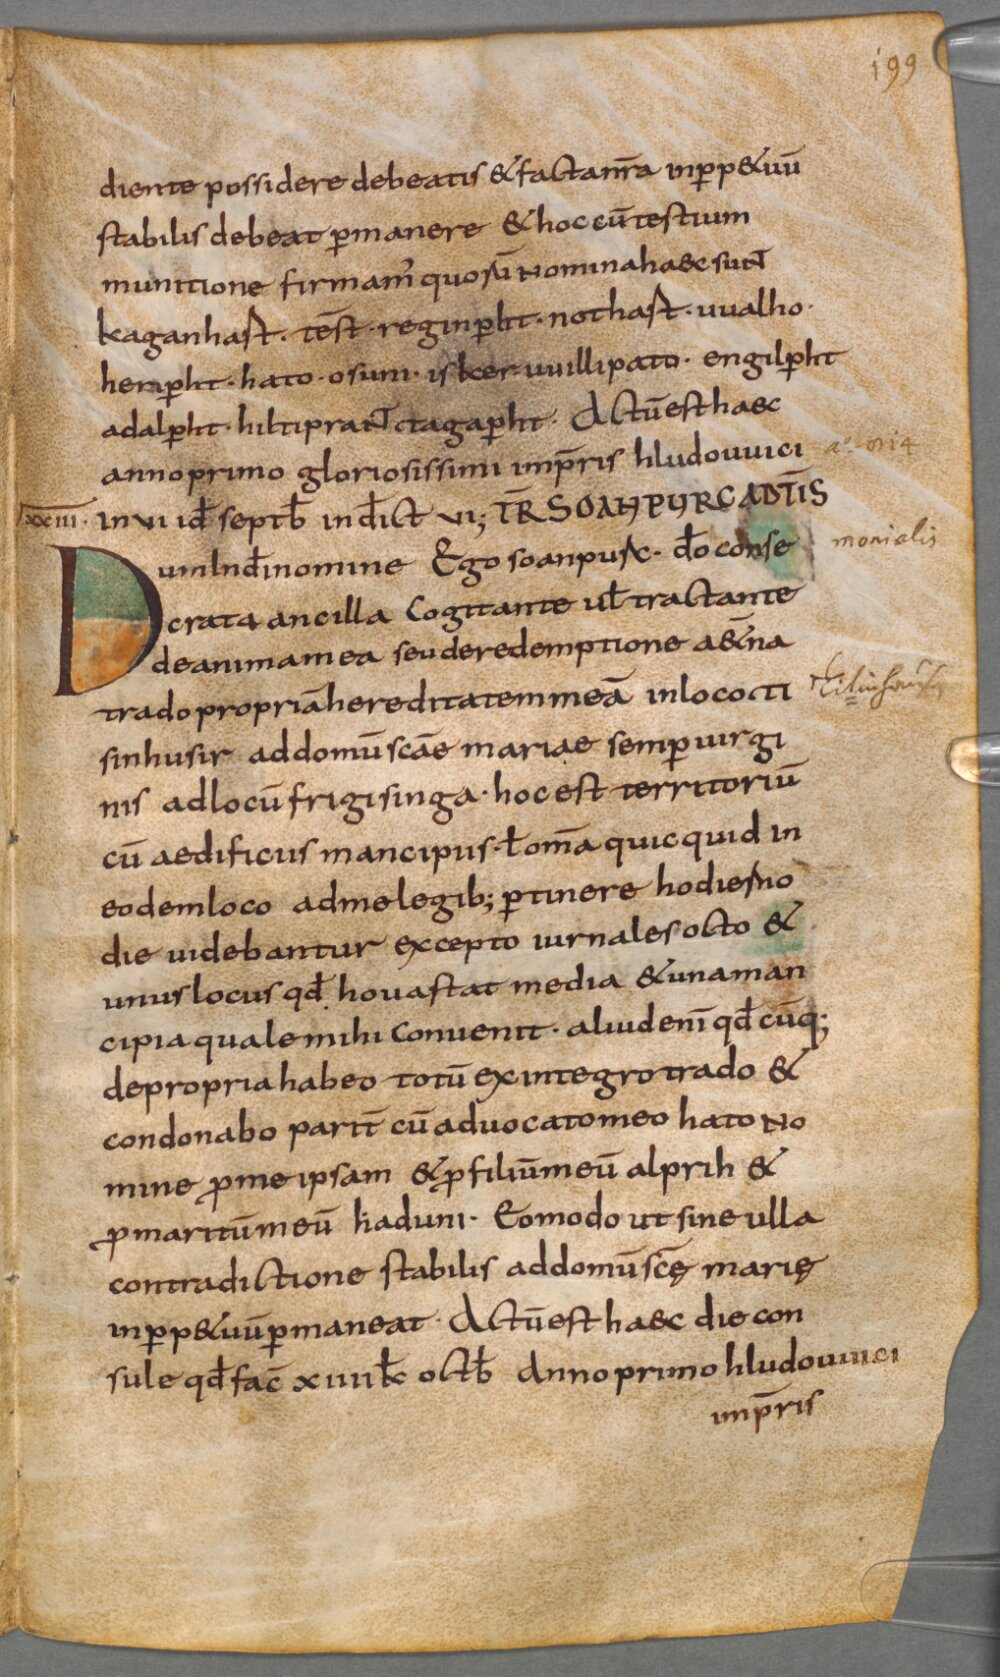 199
diente possidere debeatis & facta nr̄a in ꝑp&uū
stabilis debeat ꝑmanere & hoc cū testium
munitione firmam̄ quoꝝ nomina haec sunt
kaganhast · test̄ · reginꝑht · nothast · uualho ·
heriꝑht · hato · osuni · isker · uuillipato · engilꝑht
adalꝑht · hiltiprant tagaꝑht · Actū est haec
anno primo gloriosissimi imp̄ris hludouuici
a.º 814
xxiii · in vi id septb̄ indict̄ vi; TR̄ SOANPURC ADTĪS
Dum in dī nomine Ego soanpurc · dō conse
monialis
crata ancilla Cogitante ul̄ tractante
de anima mea seu de redemptione aet̄na
trado propriā hereditatem meā in loco ti
sinhusir ad domū scāe mariae semper uirgi
nis ad locū frigisinga · hoc est territoriū
cū aedificiis mancipiis · ł om̄a quicquid in
eodem loco ad me legib; ꝑtinere hodierno
die uidebantur excepto iurnales octo &
unus locus qđ houastat media & una man
cipia quale mihi Conuenit · aliud enī qđcūq;
de propria habeo totū ex integro trado &
condonabo parit̄ cū aduocato meo hato no
mine ꝓ me ipsam & ꝓ filiū meū alprih &
ꝓ maritū meū kaduni · Eo modo ut sine ulla
contradictione stabilis ad domū scę̄ marię
in ꝑp&uū ꝑmaneat · Actū est haec die con
sule qđ fac̄ xiiii kł octb̄ Anno primo hludouuici
imp̄ris